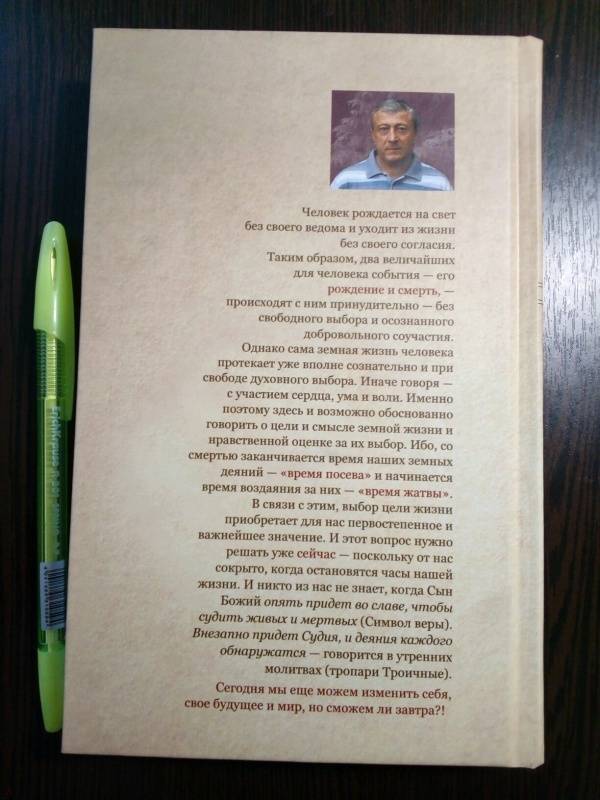 Человек рождается на свет
без своего ведома и уходит из жизни
без своего согласия.
Таким образом, два величайших
для человека события — его
рождение и смерть, —
происходят с ним принудительно — без
свободного выбора и осознанного
добровольного соучастия.
Однако сама земная жизнь человека
протекает уже вполне сознательно и при
свободе духовного выбора. Иначе говоря —
с участием сердца, ума и воли. Именно
поэтому здесь и возможно обоснованно
говорить о цели и смысле земной жизни и
нравственной оценке за их выбор. Ибо, со
смертью заканчивается время наших земных
деяний — «время посева» и начинается
время воздаяния за них — «время жатвы».
В связи с этим, выбор цели жизни
приобретает для нас первостепенное и
важнейшее значение. И этот вопрос нужно
решать уже сейчас — поскольку от нас
сокрыто, когда остановятся часы нашей
жизни. И никто из нас не знает, когда Сын
Божий опять придет во славе, чтобы
судить живых и мертвых (Символ веры).
Внезапно придет Судия, и деяния каждого
обнаружатся — говорится в утренних
молитвах (тропари Троичные).
Сегодня мы еще можем изменить себя,
свое будущее и мир, но сможем ли завтра?!
ErichKrause